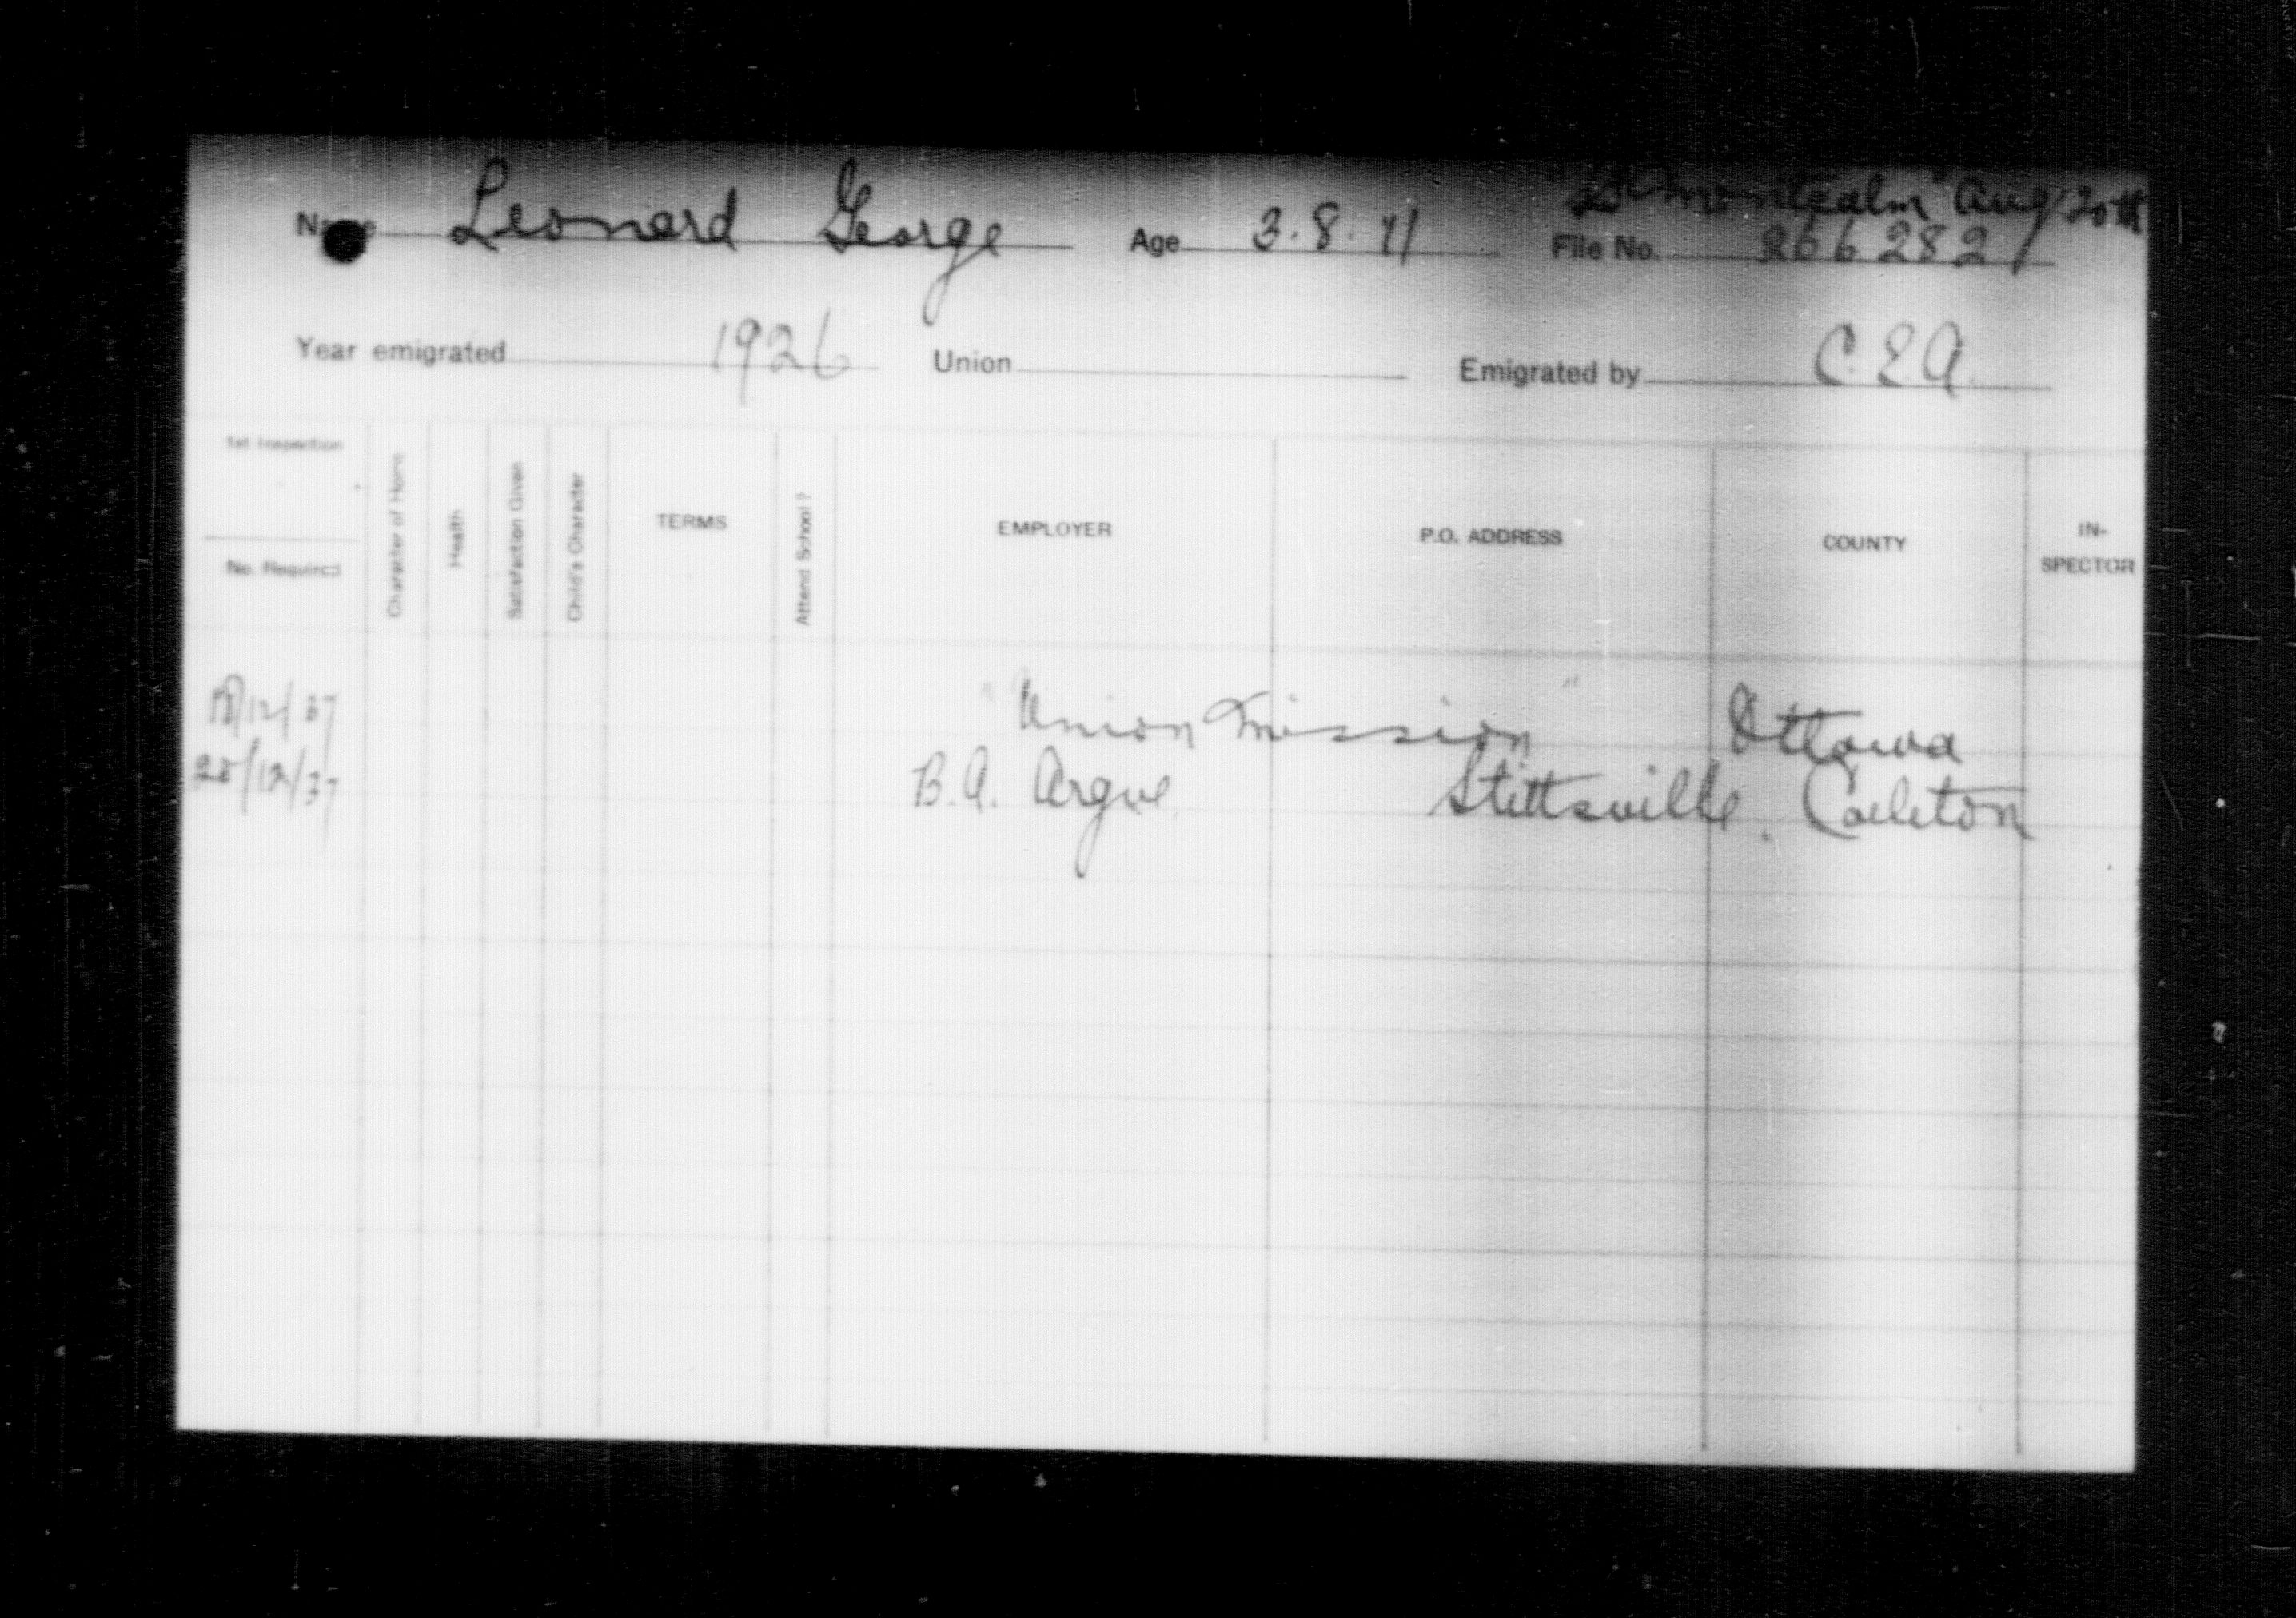 "SS Montcalm" Aug 20th
Name Leonard George Age 3.8.11 File No. 266282
Year emigrated 1926 Union Emigrated by C.E.A.
1st Inspection
No. Required
Character of Home
Health
Satisfaction Given
Child's Character
TERMS
Attend School?
EMPLOYER
P.O. ADDRESS
COUNTY
IN-
SPECTOR
/12/37 "Union Mission" Ottawa
28/12/37 B.A. Argue Stittsville. Carleton